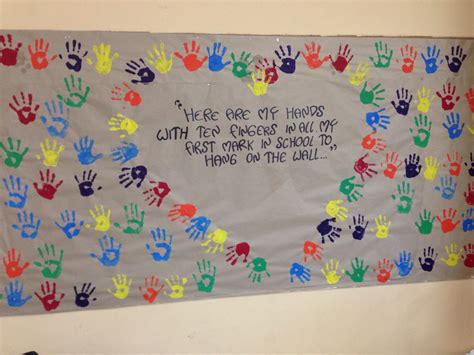 "HERE ARE MY HANDS
WITH TEN FINGERS IN ALL MY
FIRST MARK IN SCHOOL TO
HANG ON THE WALL..."